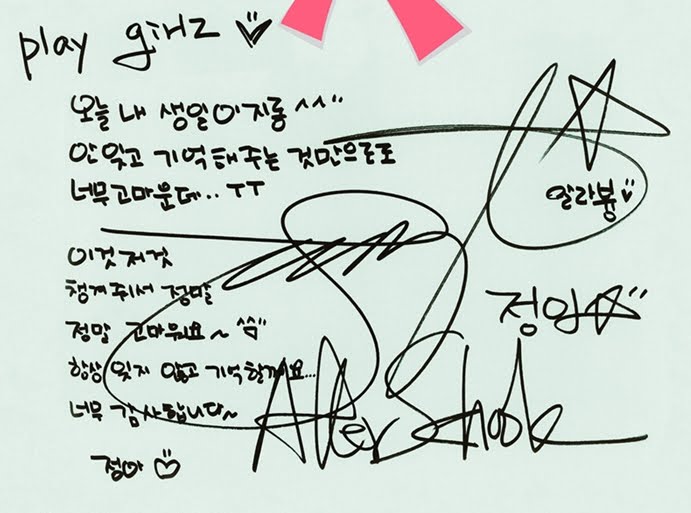 play girlz
오늘 내 생일이지롱 ^^"
안 잊고 기억해주는 것만으로도
너무 고마운데.. ㅜㅜ
이것저것
챙겨줘서 정말
정말 고마워요~
항상 잊지 않고 기억할께요...
너무 감사합니다~
정아
알라븅
정아
After School